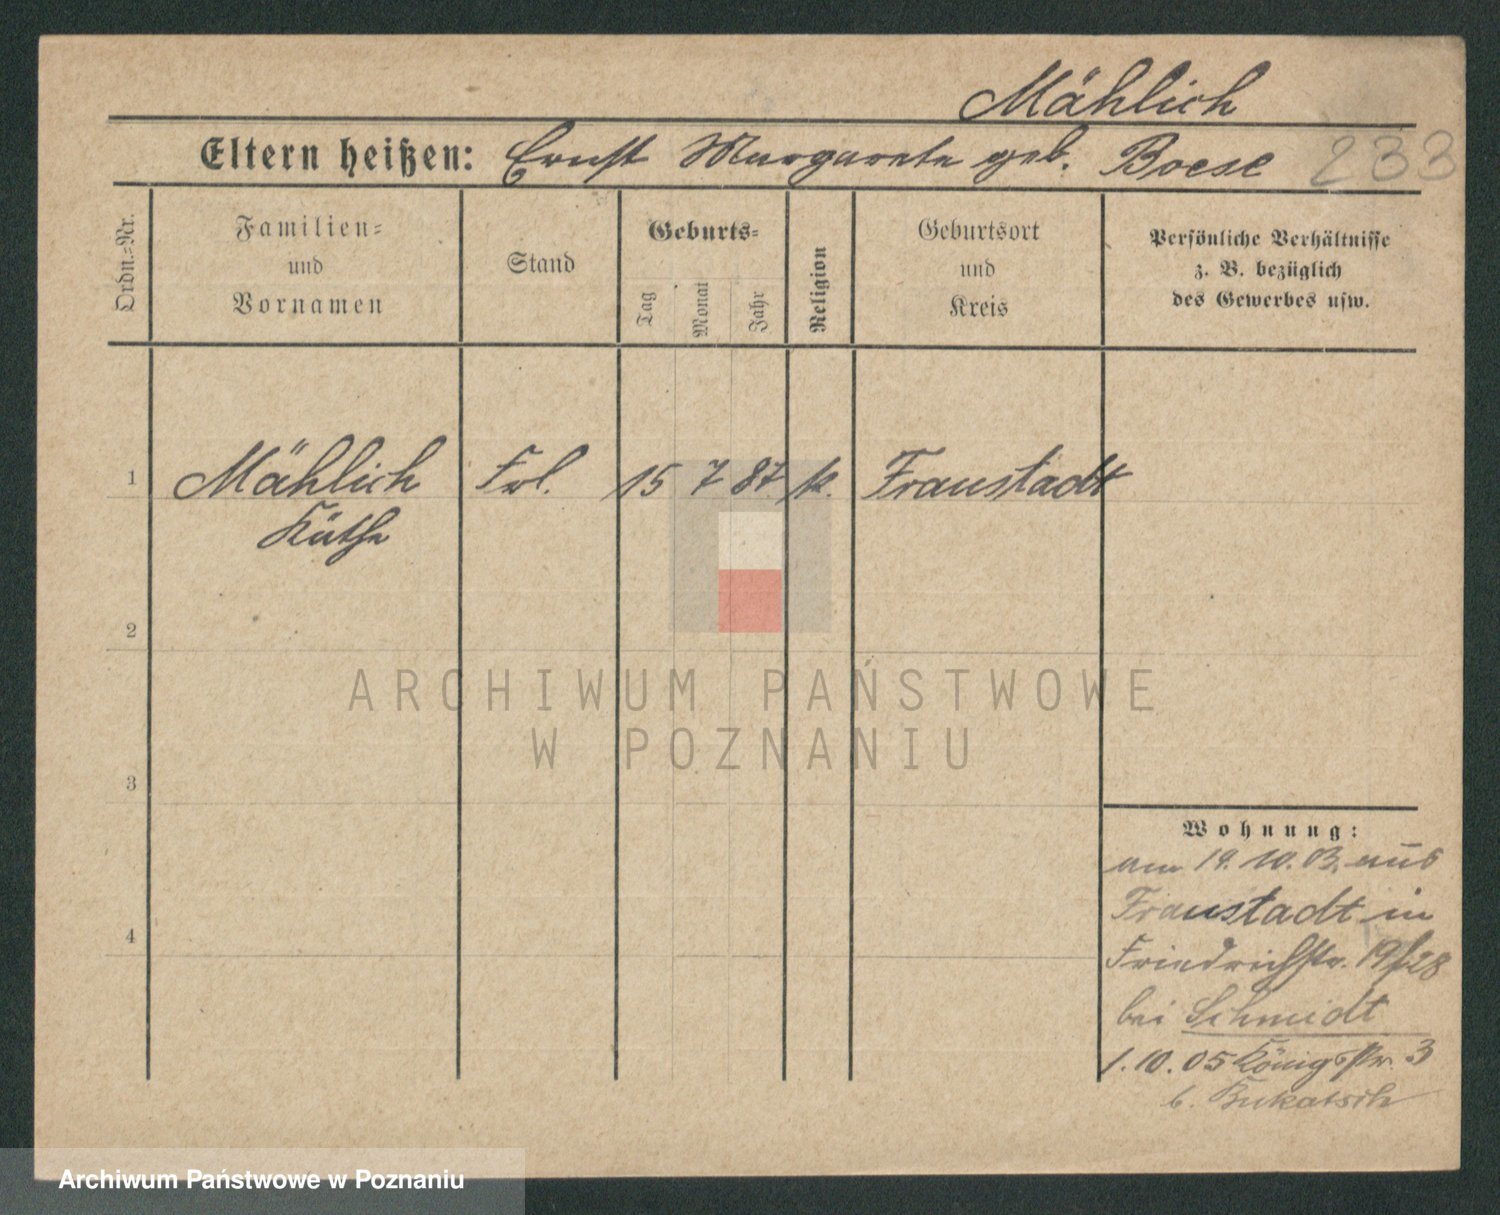 Mählich
Eltern heißen: Ernst Margarete geb. Boese 233
Ordn.-Nr.
Familien-
und
Vornamen
Stand
Geburts-
Tag
Monat
Jahr
Religion
Geburtsort
und
Kreis
Persönliche Verhältnisse
z. B. bezüglich
des Gewerbes usw.
1 Mählich Frl. 15 7 87 k. Fraustadt
Käthe
2
3
4
ARCHIWUM PAŃSTWOWE
W POZNANIU
Wohnung:
am 19. 10. 03. aus
Fraustadt in
Friedrichstr. 19/28
bei Schmidt
1. 10. 05 Königstr. 3
b.
Archiwum Państwowe w Poznaniu